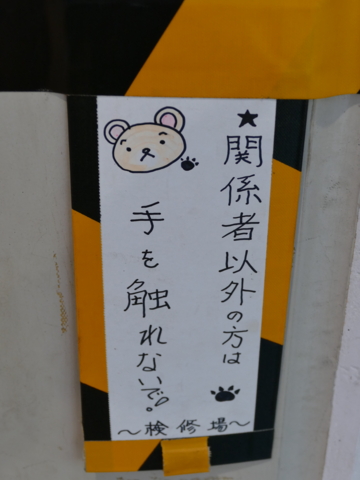 ★関係者以外の方は
手を触れないで!
～検修場～